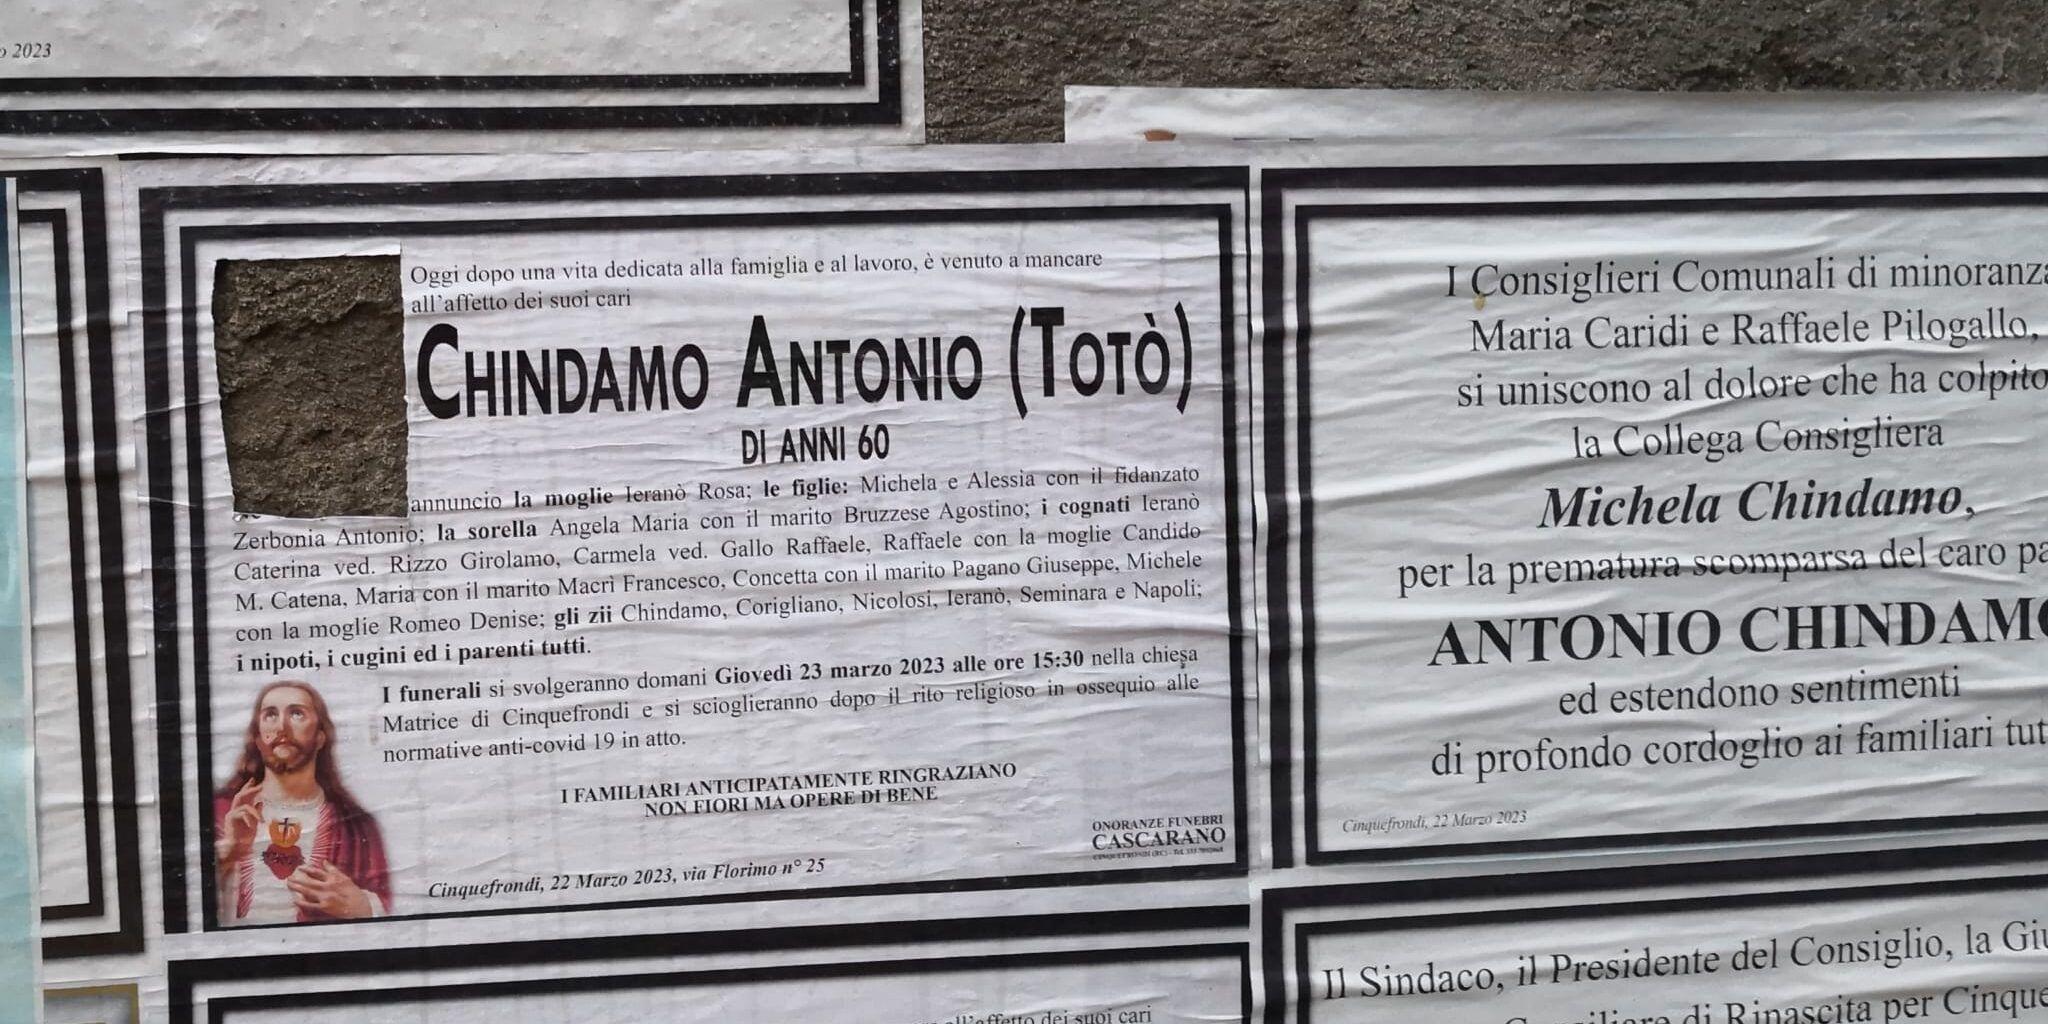 2023
Oggi dopo una vita dedicata alla famiglia e al lavoro, è venuto a mancare
all'affetto dei suoi cari
CHINDAMO ANTONIO (TOTÒ)
DI ANNI 60
annuncio la moglie Ieranò Rosa; le figlie: Michela e Alessia con il fidanzato
Zerbonia Antonio; la sorella Angela Maria con il marito Bruzzese Agostino; i cognati Ieranò
Caterina ved. Rizzo Girolamo, Carmela ved. Gallo Raffaele, Raffaele con la moglie Candido
M. Catena, Maria con il marito Macrì Francesco, Concetta con il marito Pagano Giuseppe, Michele
con la moglie Romeo Denise; gli zii Chindamo, Corigliano, Nicolosi, Ieranò, Seminara e Napoli;
i nipoti, i cugini ed i parenti tutti.
I funerali si svolgeranno domani Giovedì 23 marzo 2023 alle ore 15:30 nella chiesa
Matrice di Cinquefrondi e si scioglieranno dopo il rito religioso in ossequio alle
normative anti-covid 19 in atto.
I FAMILIARI ANTICIPATAMENTE RINGRAZIANO
NON FIORI MA OPERE DI BENE
ONORANZE FUNEBRI
CASCARANO
Cinquefrondi, 22 Marzo 2023, via Florimo n° 25
I Consiglieri Comunali di minoranza
Maria Caridi e Raffaele Pilogallo,
si uniscono al dolore che ha colpito
la Collega Consigliera
Michela Chindamo,
per la prematura scomparsa del caro pa
ANTONIO CHINDAMO
ed estendono sentimenti
di profondo cordoglio ai familiari tut
Cinquefrondi, 22 Marzo 2023
Il Sindaco, il Presidente del Consiglio, la Giu
di Rinascita per Cinque
all'affetto dei suoi cari